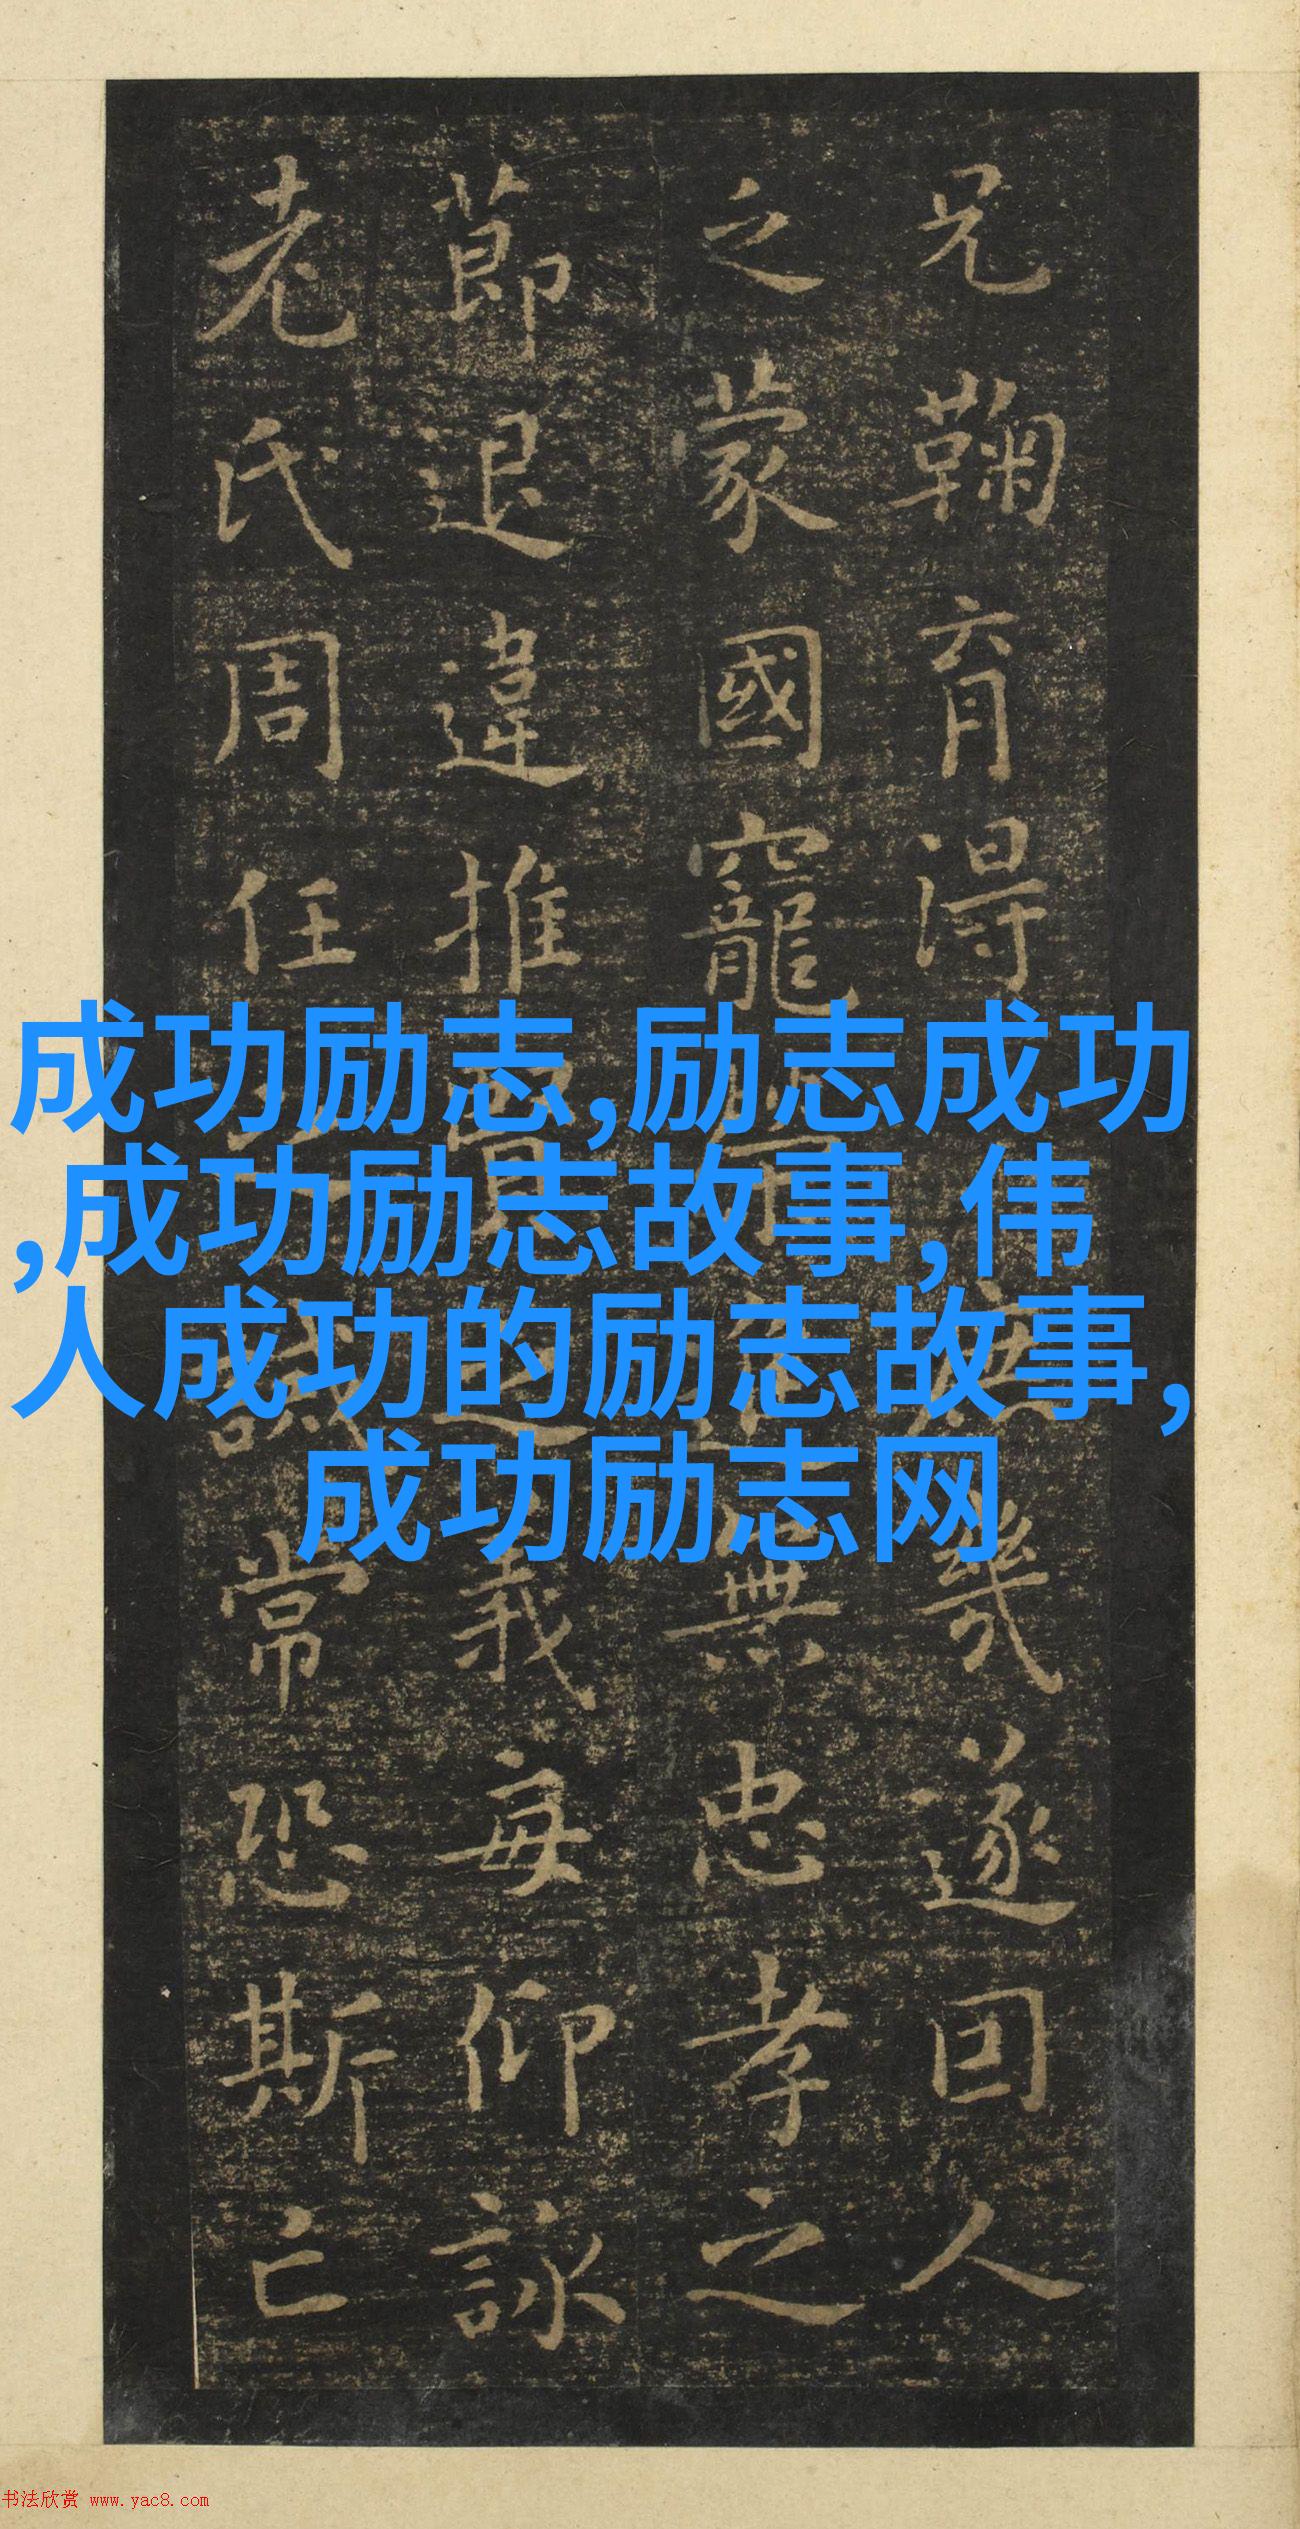 兄鞠育得庶幾遂因人
乏蒙國寵進無忠孝之
節退違推賢之義每仰詠
老氏周任之誡常恐斯亡
成功励志,励志成功
,成功励志故事,伟
人成功的励志故事,
成功励志网
书法欣赏 www.yac8.com